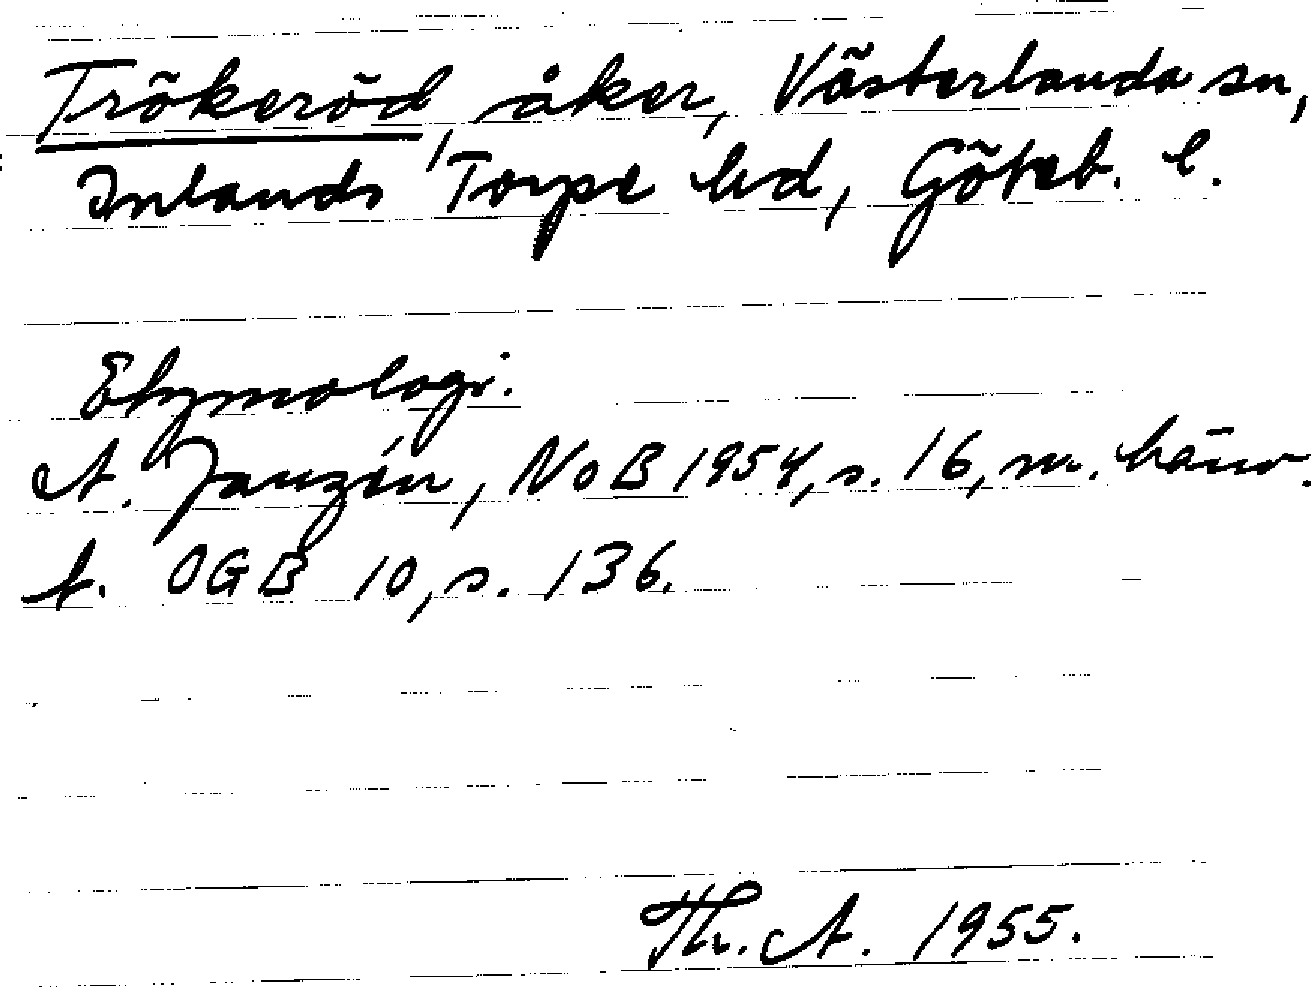 Trökeröd, åker, Västerlanda sn,
Inlands Torpe hd, Göteb. l.
Etymologi.
A. Janzén, NoB 1954, s. 16, m. hänv.
t. OGB 10, s. 136.
Th. A. 1955.